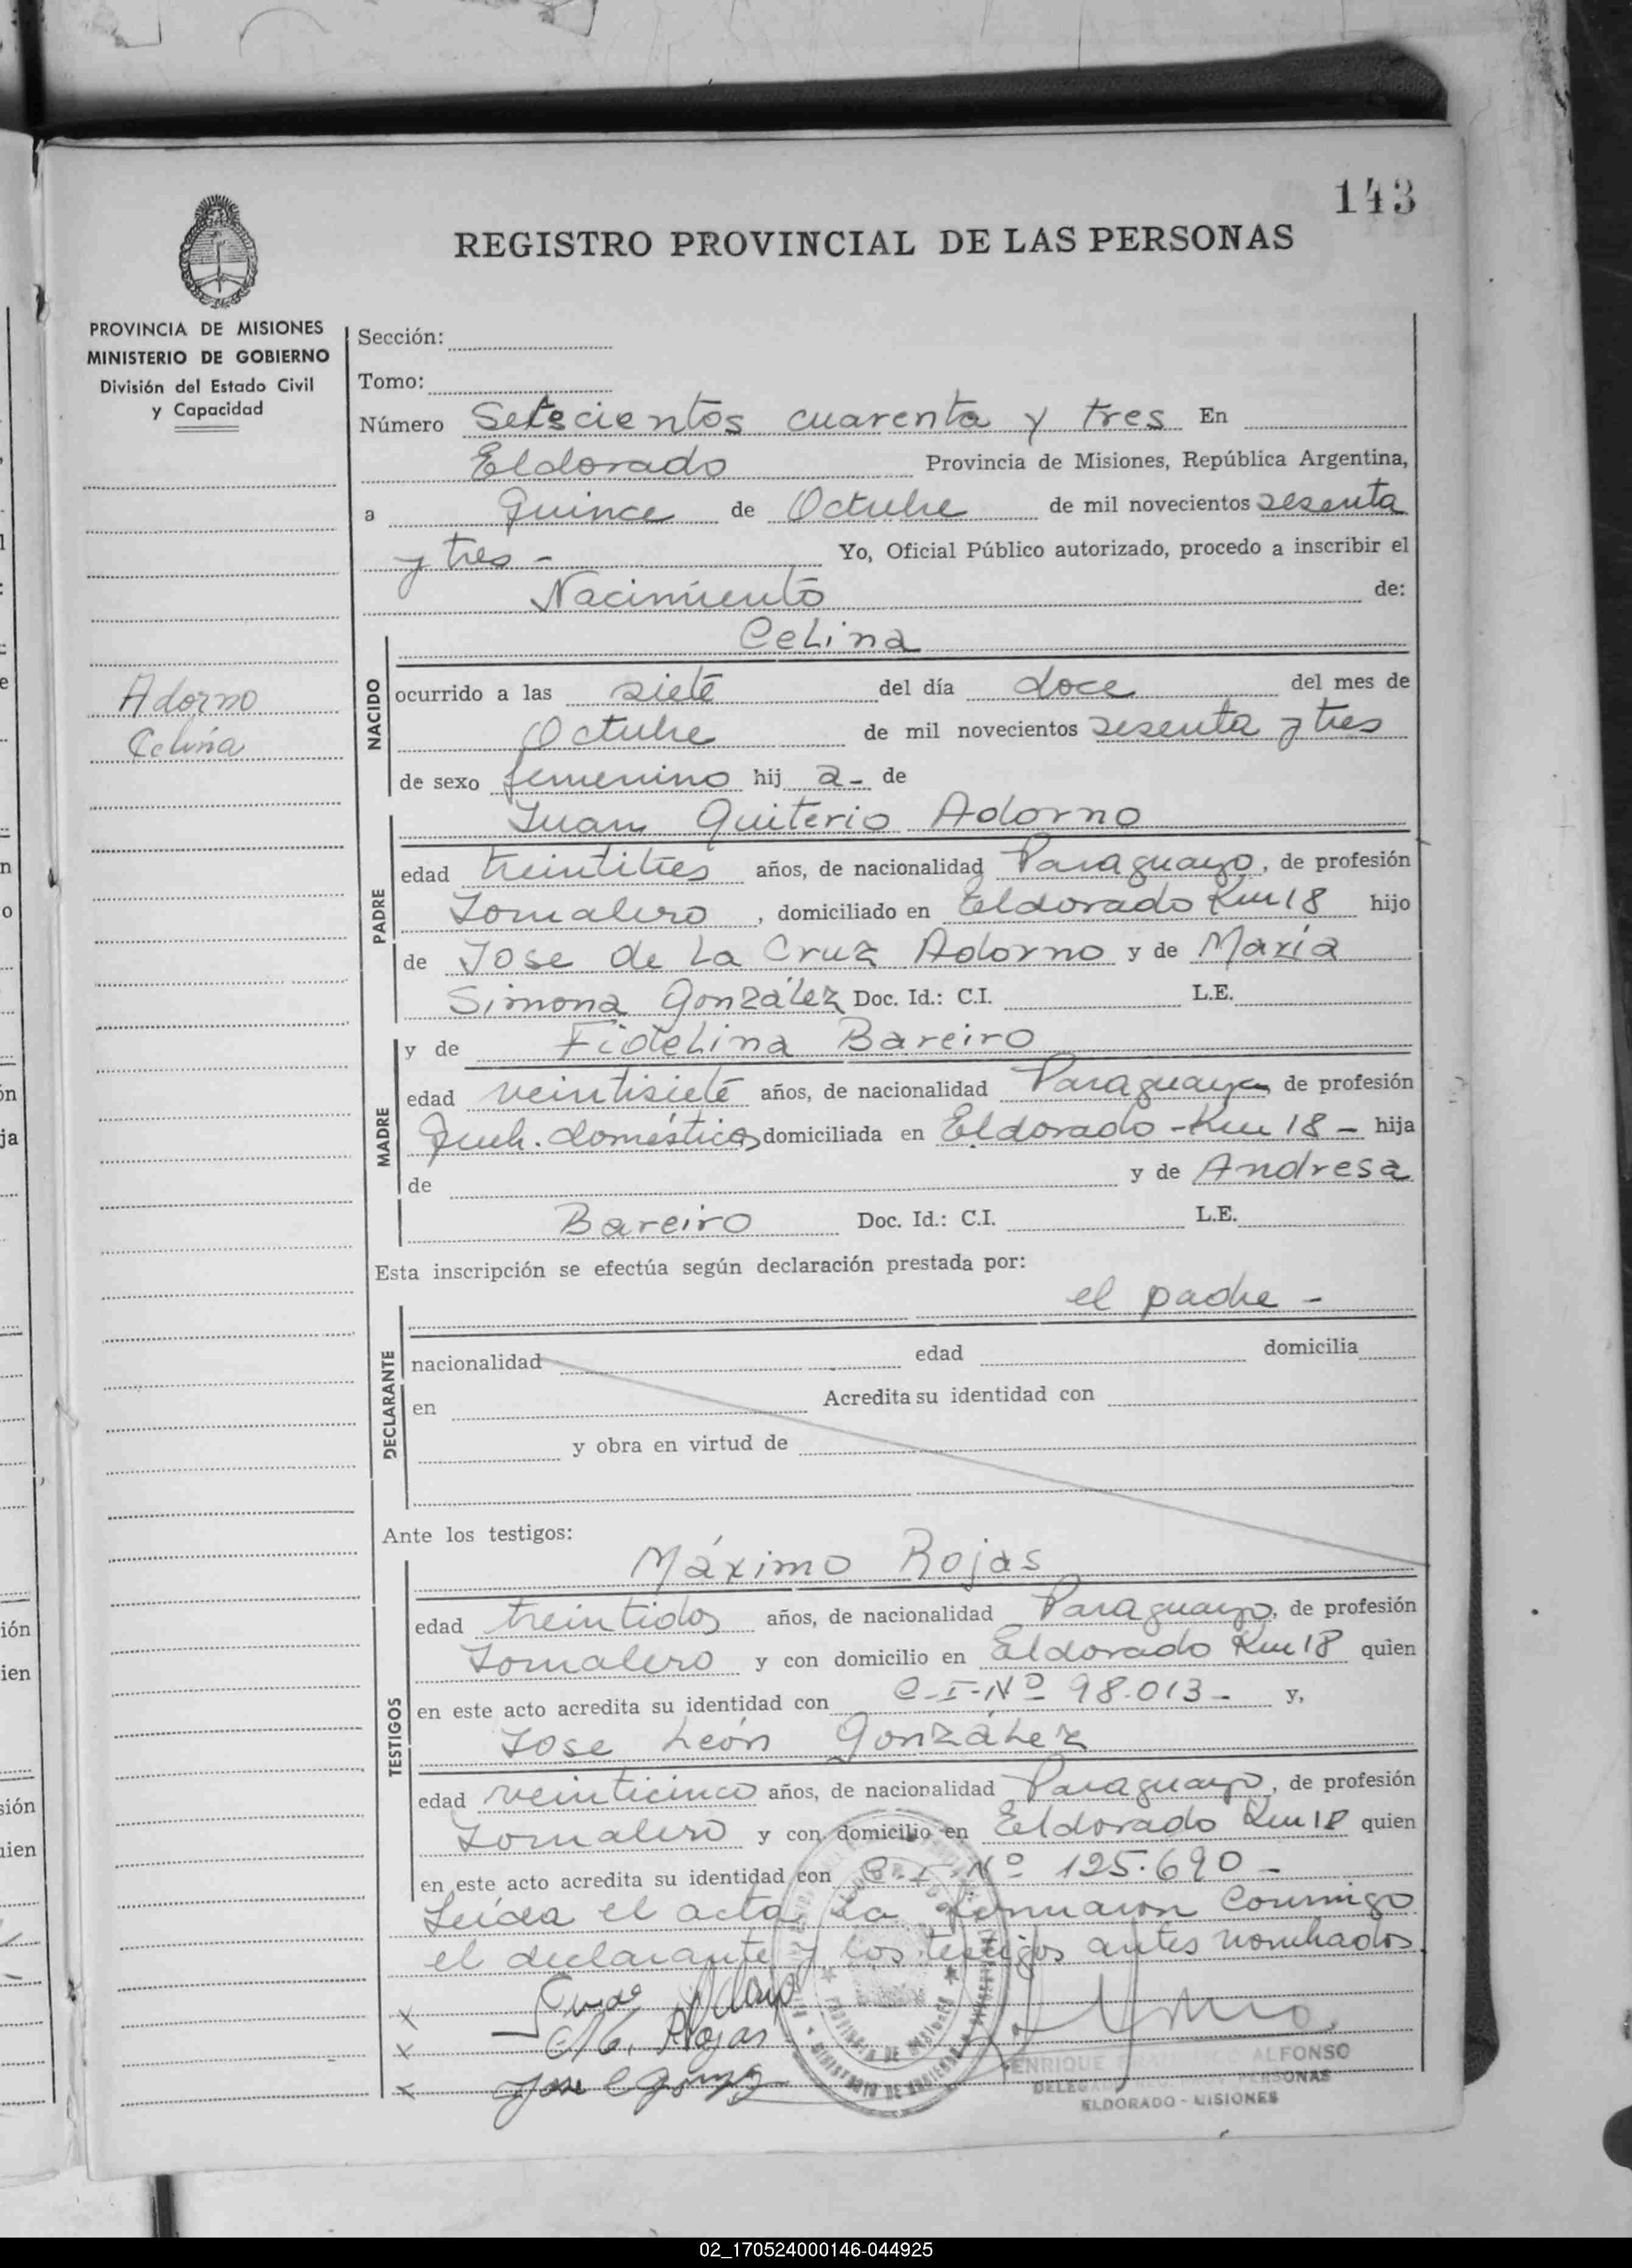 143
REGISTRO PROVINCIAL DE LAS PERSONAS
PROVINCIA DE MISIONES
MINISTERIO DE GOBIERNO
División del Estado Civil
y Capacidad
Adorno
Celina
Sección:
Tomo:
Número Setscientos cuarenta y tres En
Eldorado Provincia de Misiones, República Argentina,
a Quince de Octubre de mil novecientos sesenta
y tres - Yo, Oficial Público autorizado, procedo a inscribir el
Nacimiento de:
NACIDO
Celina
ocurrido a las siete del día doce del mes de
Octubre de mil novecientos sesenta y tres
de sexo femenino hij a- de
PADRE
Juan Quiterio Adorno
edad treintitres años, de nacionalidad Paraguayo, de profesión
Jornalero, domiciliado en Eldorado Km 18 hijo
de Jose de La Cruz Adorno y de María
Simona González Doc. Id.: C.I. L.E.
MADRE
y de Fidelina Bareiro
edad veintisiete años, de nacionalidad Paraguaya, de profesión
domésticos domiciliada en Eldorado - Km 18 - hija
de y de Andresa
Bareiro Doc. Id.: C.I. L.E.
Esta inscripción se efectúa según declaración prestada por:
DECLARANTE
el padre -
nacionalidad edad domicilia
en Acredita su identidad con
y obra en virtud de
Ante los testigos:
TESTIGOS
Máximo Rojas
edad treintidos años, de nacionalidad Paraguayo, de profesión
Jornalero y con domicilio en Eldorado Km 18 quien
en este acto acredita su identidad con C-I-Nº 98.013- y,
Jose León González
edad veinticinco años, de nacionalidad Paraguayo, de profesión
Jornalero y con domicilio en Eldorado Km 18 quien
en este acto acredita su identidad con C-I-Nº 125.690-
Leída el acta La firmaron Conmigo
el declarante y los testigos antes nombrados
x
x Rojas
x Jose
ENRIQUE ALFONSO
PERSONAS
ELDORADO - MISIONES
02_170524000146-044925